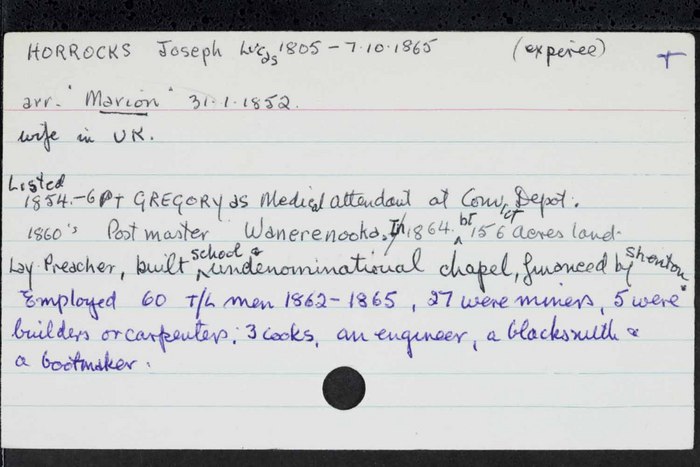 HORROCKS Joseph Lucas 1805 - 7.10.1865 (expiree) +
arr. "Marion" 31.1.1852.
wife in UK.
Listed
1854.-6 Pt GREGORY as Medical attendant at Conv. Depot.
1860's Postmaster Wanerenooka, In 1864 bt 156 acres land.
Lay Preacher, built school & undenominational chapel, financed by Shenton.
Employed 60 T/L men 1862-1865, 27 were miners, 5 were
builders or carpenters, 3 cooks, an engineer, a blacksmith &
a bootmaker.